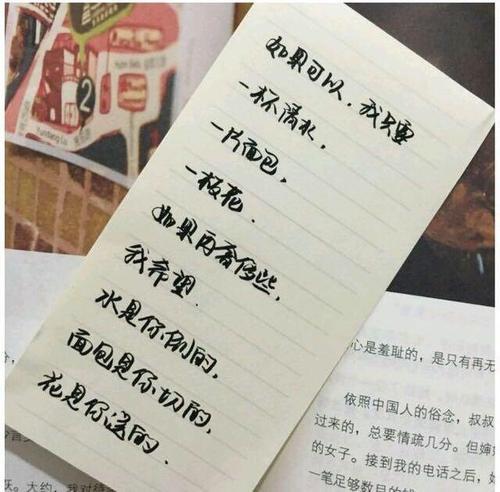 如果可以，我只需
一杯清水，
一片面包，
一枝花．
如果再奢侈些，
我希望
水是你倒的，
面包是你切的，
花是你送的．
2
心是羞耻的，是只有再无
依照中国人的俗念，叔叔
过来的，总要情疏几分。但婶
的女子。接到我的电话之后，
一笔足够数目的
大约，我对待